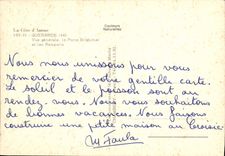 La Côte d'Amour
GUERANDE
Vue générale, la Porte
et les Remparts
Couleurs
Naturelles
Nous nous unissons pour vous
remercier de votre gentille carte.
Le soleil et le poisson sont au
rendez-vous. Nous vous souhaitons
de bonnes vacances. Nous faisons
construire une petite maison au Croisic